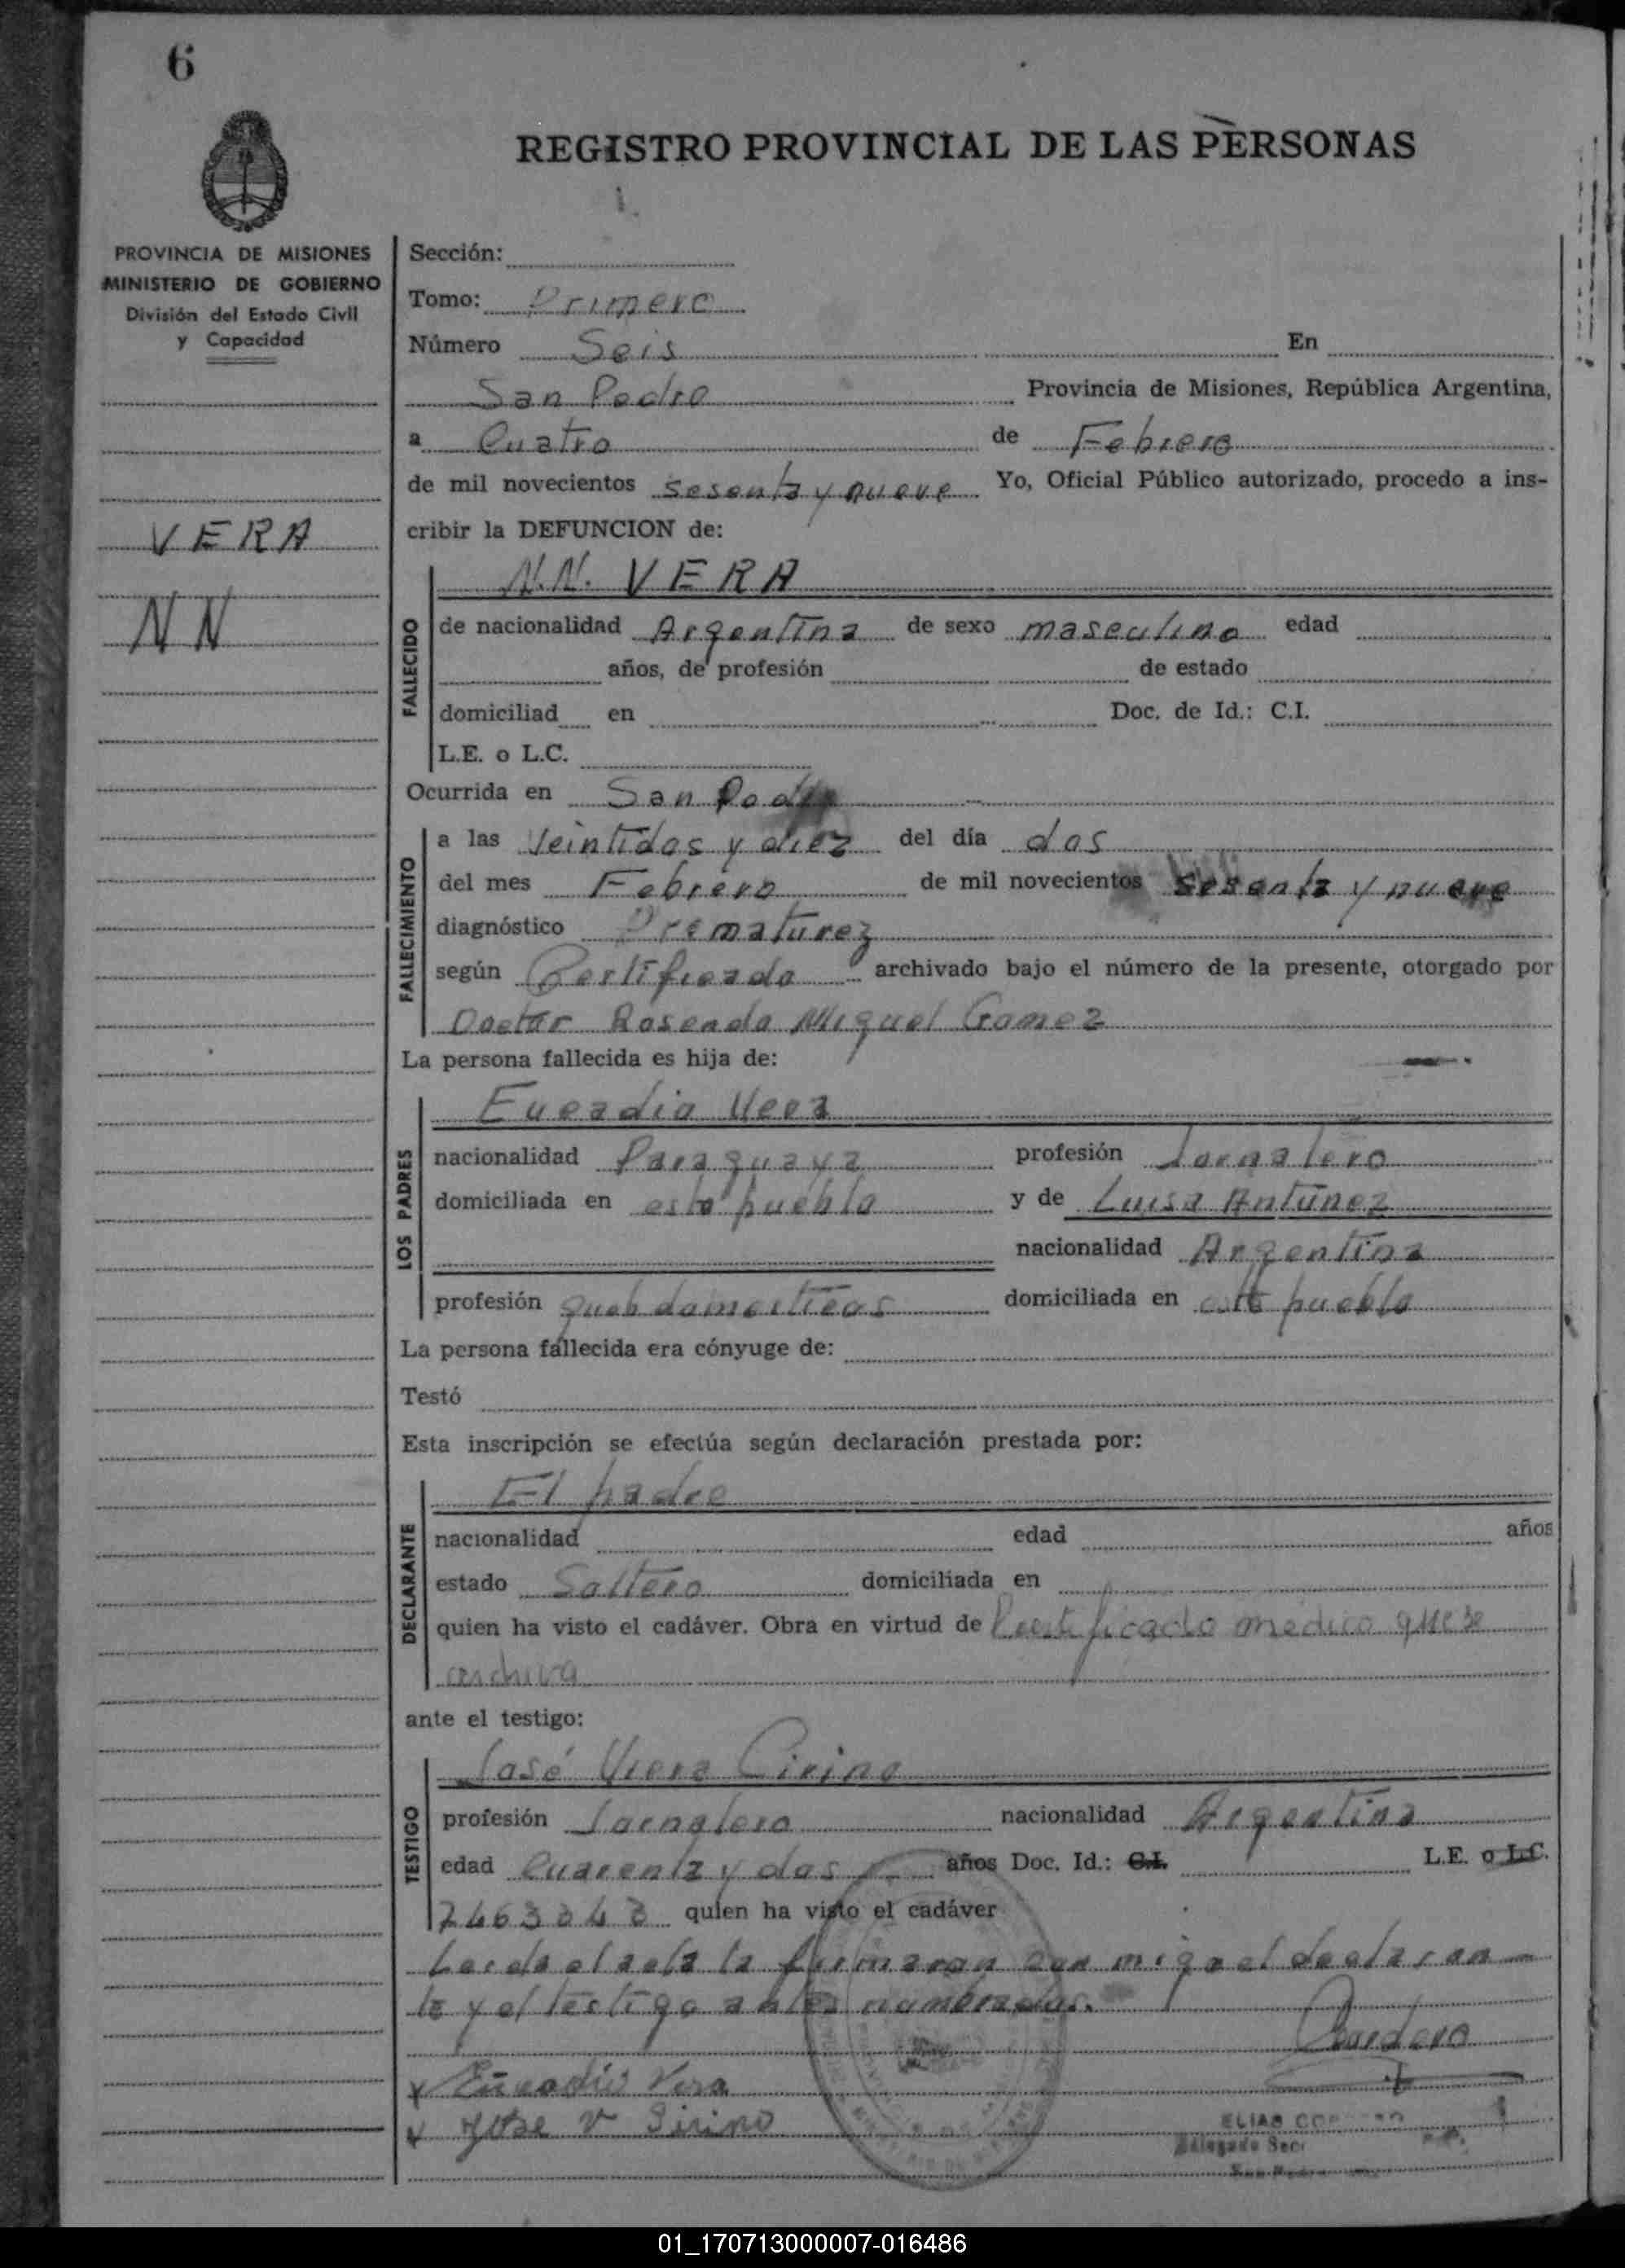 6
REGISTRO PROVINCIAL DE LAS PERSONAS
PROVINCIA DE MISIONES
MINISTERIO DE GOBIERNO
División del Estado Civil
y Capacidad
VERA
NN
Sección:
Tomo: Primero
Número Seis En
San Pedro Provincia de Misiones, República Argentina,
a Cuatro de Febrero
de mil novecientos sesenta y nueve Yo, Oficial Público autorizado, procedo a ins-
cribir la DEFUNCION de:
N.N. VERA
FALLECIDO
de nacionalidad Argentina de sexo masculino edad
años, de profesión de estado
domiciliad en Doc. de Id.: C.I.
L.E. o L.C.
Ocurrida en San Pedro
FALLECIMIENTO
a las Veintidos y diez del día dos
del mes Febrero de mil novecientos sesenta y nueve
diagnóstico Prematurez
según Certificado archivado bajo el número de la presente, otorgado por
Doctor Rosendo Miguel Gomez
La persona fallecida es hija de:
LOS PADRES
Eucadio Vera
nacionalidad Paraguaya profesión Jornalero
domiciliada en este pueblo y de Luisa Antunez
nacionalidad Argentina
profesión domesticos domiciliada en este pueblo
La persona fallecida era cónyuge de:
Testó
Esta inscripción se efectúa según declaración prestada por:
DECLARANTE
El padre
nacionalidad edad años
estado Soltero domiciliada en
quien ha visto el cadáver. Obra en virtud de Certificado medico que se
archiva
ante el testigo:
TESTIGO
José Viera Cirino
profesión Jornalero nacionalidad Argentina
edad Cuarenta y dos años Doc. Id.: C.I. L.E. o L.C.
7463343 quien ha visto el cadáver
Leida el acta la firmaran con migo el declaran-
te y el testigo antes nombrados.
Cordero
x Eucadio Vera
x Jose V Sirino
ELIAS
Delegado
01_170713000007-016486